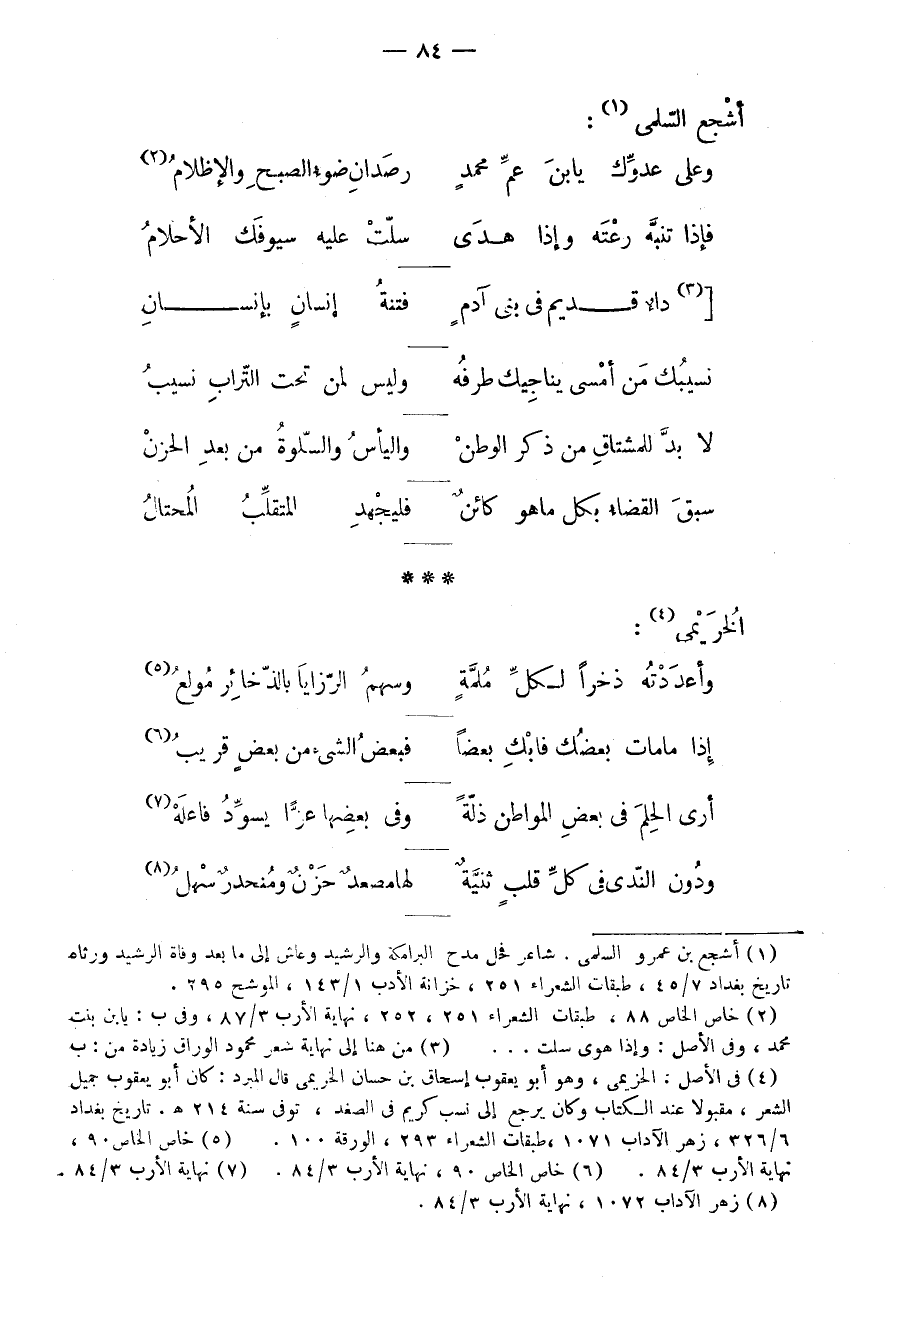 — ٨٤ —
أشْجع السّلمى (١) :
وعلى عدوِّك يابنَ عمِّ محمدٍ رصَدانِ ضوءالصبحِ والإظلامُ (٢)
فإذا تنبَّه رعْتَه وإذا هـدَى سلّتْ عليه سيوفَك الأحلامُ
[(٣) داء قـديم فى بنى آدمٍ فتنةُ إنسانٍ بإنسـانِ
نسيبُك مَن أمْسى يناجيك طرفهُ وليس لمن تحت التّرابِ نسيبُ
لا بدَّ للمشتاقِ من ذكر الوطنْ واليأسُ والسّلوةُ من بعدِ الحزنْ
سبقَ القضاء بكل ماهو كائنٌ فليجْهدِ المتقلِّبُ المُحتالُ
***
الخرَيْمى (٤) :
وأعدَدْتهُ ذخراً لـكلِّ مُلمَّةٍ وسهمُ الرّزاياَ بالذّخائرِ مُولعُ (٥)
إذا مامات بعضُك فابْكِ بعضاً فبعضُ الشىء من بعضٍ قريبُ (٦)
أرى الحِلمَ فى بعضِ المواطن ذلّةً وفى بعضِها عزًّا يسودِّدُ فاعلَهْ (٧)
ودُون النّدى فى كلِّ قلبٍ ثنيَّةٌ لهامصعدٌ حَزْنٌ ومُنحدرٌ سْهلُ (٨)
(١) أشجع بن عمرو السلمى . شاعر فحل مدح البرامكة والرشيد وعاش إلى ما بعد وفاة الرشيد ورثاه
تاريخ بغداد ٤٥/٧ ، طبقات الشعراء ٢٥١ ، خزانة الأدب ١٤٣/١ ، الموشح ٢٩٥ .
(٢) خاص الخاص ٨٨ ، طبقات الشعراء ٢٥١ ، ٢٥٢ ، نهاية الأرب ٨٧/٣ ، وفى ب : يابن بنت
محمد ، وفى الأصل : وإذا هوى سلت . . . (٣) من هنا إلى نهاية شعر محمود الوراق زيادة من : ب
(٤) فى الأصل : الخزيمى ، وهو أبو يعقوب إسحاق بن حسان الخريمى قال المبرد : كان أبو يعقوب جميل
الشعر ، مقبولا عند الكتاب وكان يرجع إلى نسب كريم فى الصغد ، توفى سنة ٢١٤ ه . تاريخ بغداد
٣٢٦/٦ ، زهر الآداب ١٠٧١ ،طبقات الشعراء ٢٩٣ ، الورقة ١٠٠ . (٥) خاص الخاص ٩٠ ،
نهاية الأرب ٨٤/٣ . (٦) خاص الخاص ٩٠ ، نهاية الأرب ٨٤/٣ . (٧) نهاية الأرب ٨٤/٣ .
(٨) زهر الآداب ١٠٧٢ ، نهاية الأرب ٨٤/٣ .